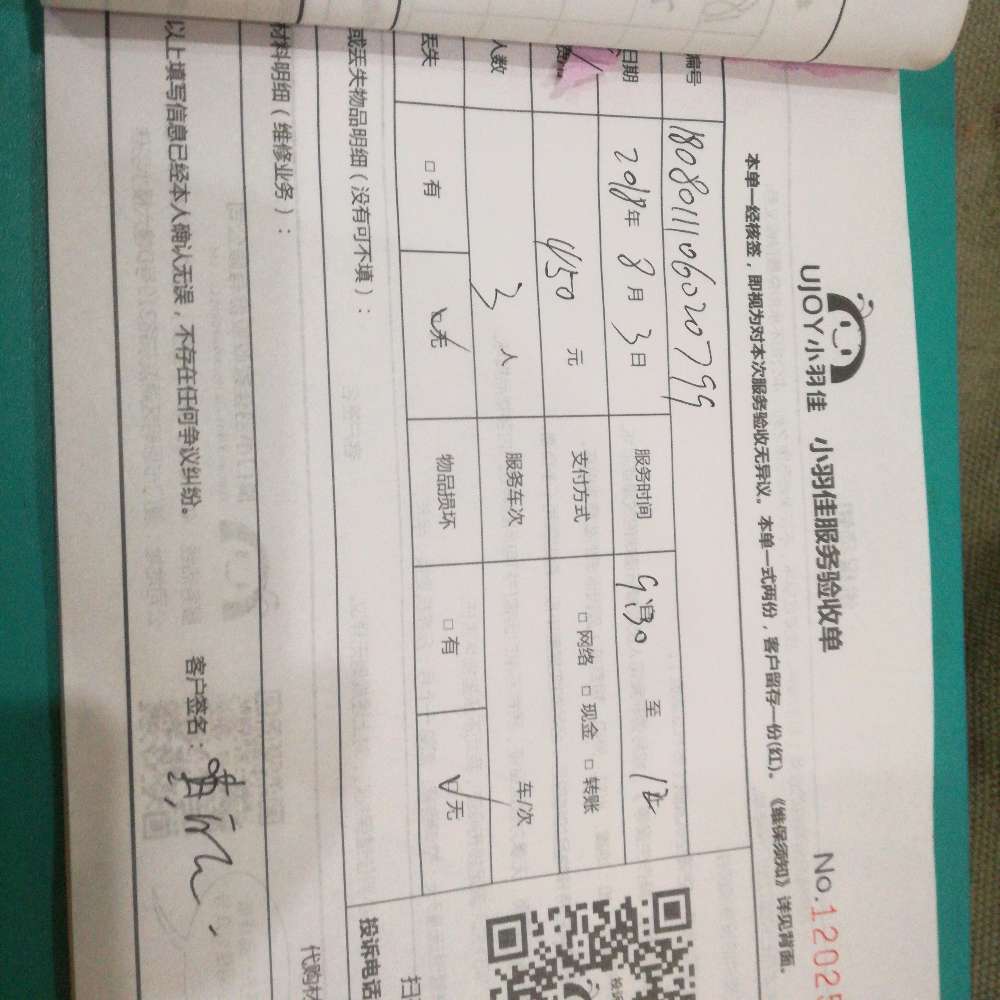 UJOY小羽佳 小羽佳服务验收单 No.1202
本单一经核签，即视为对本次服务验收无异议。本单一式两份，客户留存一份(红)。《维保须知》详见背面。
编号 1808011106020799
日期 2018年 8月 3日 服务时间 9:30 至 12
费 450 元 支付方式 □网络 □现金 □转账
人数 3 人 服务车次 车/次
丢失 □有 □无 物品损坏 □有 □无
或丢失物品明细（没有可不填）：
投诉电话
材料明细（维修业务）：
代购材
以上填写信息已经本人确认无误，不存在任何争议纠纷。 客户签名：